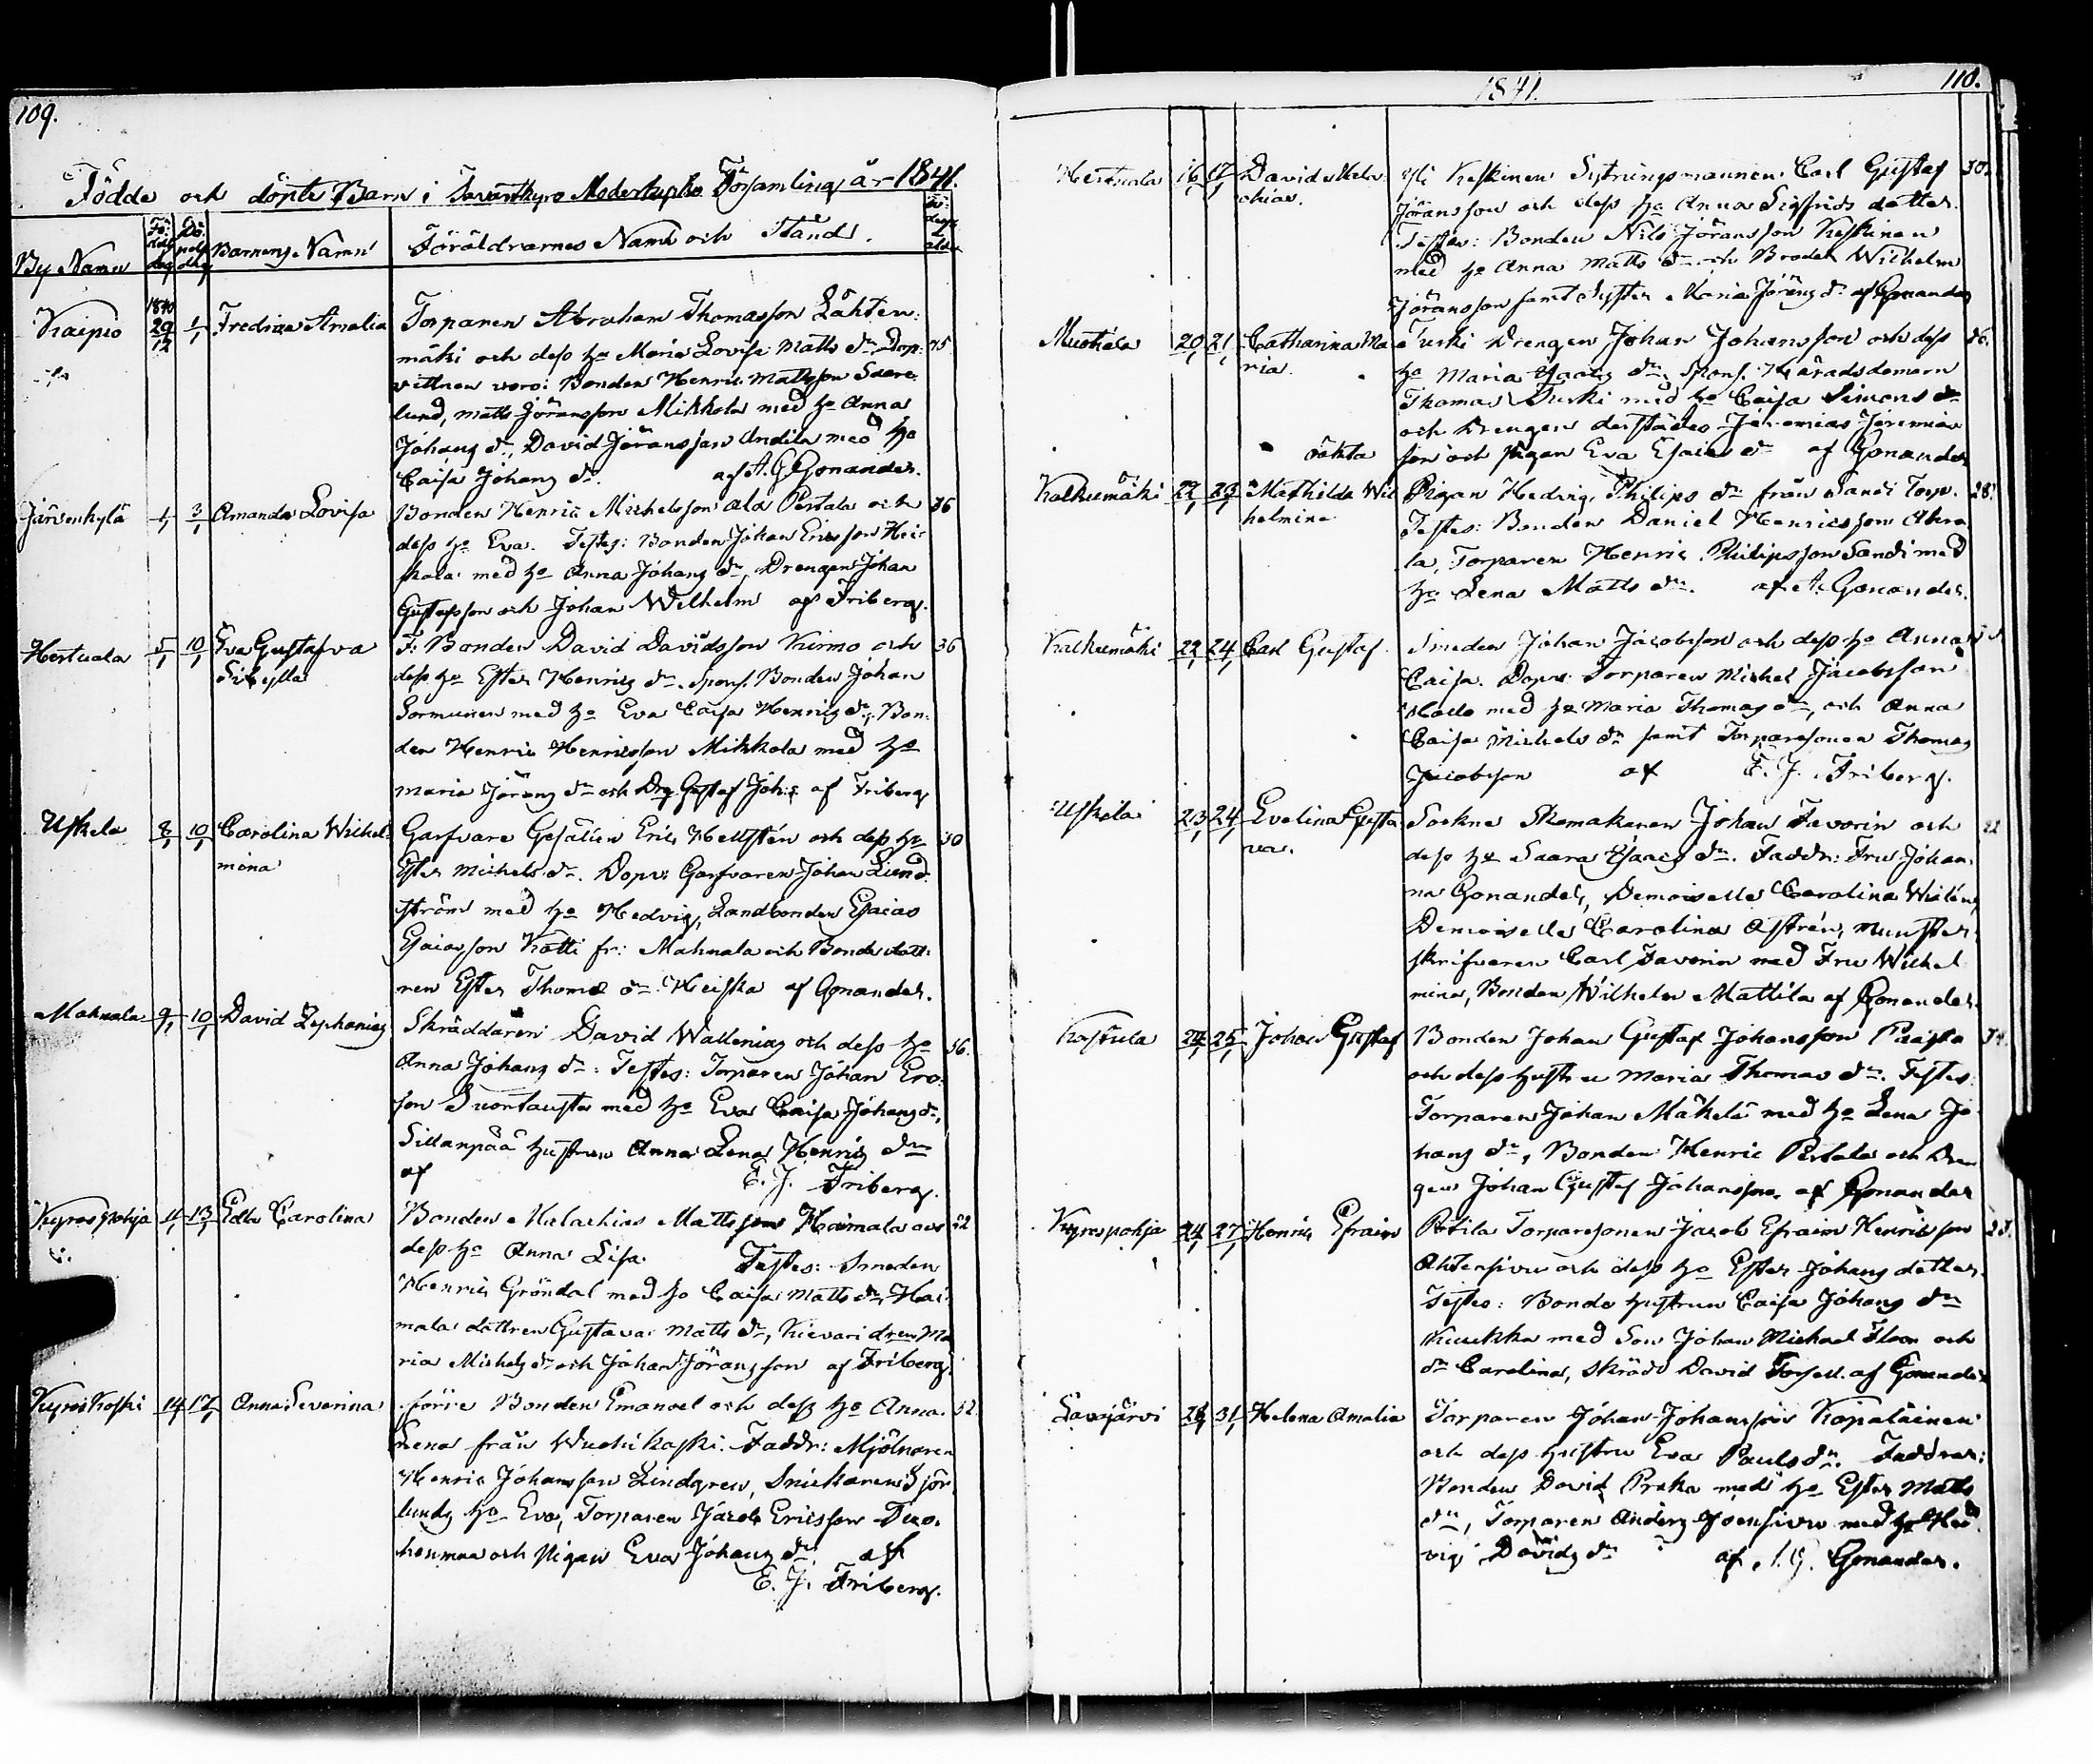 109.
Födde och döpte Barn i Tavastkyro Moderkyrko Församling år 1841.
By Namn
Barnens Namn
Föräldrarnes Namn och Stånd.
Kaipio 1840 29/12 1/1 Fredrica Amalia Torparen Abraham Thomasson Lähten:
mäki och dess ho Maria Lovisa Matts dr. Dop: 45
vittnen voro: Bonden Henric Mattsson
lund, Matts Jöransson Mikkola med ho Anna
Johans dr., David Jöransson Andila med ho
Caisa Johans dr. af A. G. Gonander.
Järvenkylä 1/1 3/1 Amanda Lovisa Bonden Henric Michelsson Ala Pertala och 36
dess ho Eva. Testes: Bonden Johan Ericsson Hei:
skala med ho Anna Johans dr, Drengen Johan
Gustafsson och Johan Wilhelm af Friberg.
Hertuala 5/1 10/1 Eva Gustafva F: Bonden David Davidsson Kuimo och 36
Sibylla dess ho Ester Henrics dr. spons. Bonden Johan
Sormunen med ho Eva Caisa Henrics dr, Bon:
den Henric Henricsson Mikkola med ho
Maria Jörans dr och Drg Gustaf Joh:s af Friberg
Uskela 8/1 10/1 Carolina Wilhel Garfvare Gesällen Eric Hellstén och dess ho 30
mina Ester Michels dr. Dopv: Garfvaren Johan Lind
ström med ho Hedvig, Landbonden Esaias
Esaiasson Kåtti fr: Mahnala och Bonde dott:
ren Ester Thomæ dr. Heiska af Gonander.
Mahnala 9/1 10/1 David Zephanias Skräddaren David Wallenius och dess ho 36.
Anna Johans dr: Testes: Torparen Johan Ers:
son Suontausta med ho Eva Caisa Johans dr,
Sillanpää hustrun Anna Lena Henrics dr
af E. J. Friberg.
Kyrospohja 11/1 13/1 Edla Carolina Bonden Malachias Mattsson Haimala och 22
dess ho Anna Lisa. Testes: Smeden
Henric Gröndal med ho Caisa Matts dr, Hai:
mala dottren Gustava Matts dr, Kievari Ma
ria Michels dr och Johan Jöransson af Friberg.
Kyröskoski 14 17/1 Anna Severina förre Bonden Emanoel och dess ho Anna 32.
Lena från Wuohikoski. Faddr: Mjölnaren
Henric Johansson Lindgren, Snickaren Sjör
lunds ho Eva, Torparen Jacob Ericsson Tuo:
henmaa och Pigan Eva Johans dr. af
E. J. Friberg.
1841.
110.
Hertuala 16/1 17/1 David Mela Yli Keskinen Sytningsmannen Carl Gustaf 30.
chias. Jöransson och dess ho Anna Sigfrids dotter.
Testes: Bonden Nils Jöransson Keskinen
med ho Anna Matts dr och Broder Wilhelm
Jöransson samt Syster Maria Jörans dr. af Gonander
20/1 21/1 Catharina Ma Turki Drengen Johan Johansson och dess 26.
ria. ho Maria Isaacs dr, spons. Häradsdomarn
Thomas Turki med ho Caisa Simons dr
och Drengen derstädes Jeremias Jeremias
oäkta son och Pigan Eva Esaias dr af Gonander
Kalkumäki 22/1 23/1 Mathilda Wil Pigan Hedvig Philips dr från Sandi Torp. 28.
helmina Testes: Bonden Daniel Henricsson
la, Torparen Henric Philipsson Sandi med
ho Lena Matts dr. af A. Gonander.
Kalkumäki 22/1 24/1 Carl Gustaf. Smeden Johan Jacobsson och dess ho Anna
Caisa. Dopv: Torparen Michel Jacobsson
med ho Maria Thomas dr, och Anna
Caisa Michels dr samt Torparesonen Thomas
Jacobsson af E. J. Friberg.
Uskela 23/1 24/1 Evelina Gusta Sockne Skomakaren Johan Favorin och 22
va. dess ho Saara Isaacs dr. Faddr: Fru Johan:
na Gonander, Demoiselle Carolina Wialén,
Demoiselle Carolina Aströn, Munster:
skrifvaren Carl Favorin med Fru Wilhel
mina, Bonden Wilhelm Mattila af Gonander.
Kostula 24/1 25/1 Johan Gustaf Bonden Johan Gustaf Johansson Paista 34.
och dess hustru Maria Thomas dr. Testes:
Torparen Johan Mäkelä med ho Lena Jo
hans dr, Bonden Henric Pertala och Dren
gen Johan Gustaf Johansson af Gonander
Kyrospohja 24/1 27/1 Henric Efraim Pitila Torparesonen Jacob Efraim Henricsson 23.
Ahtensivu och dess ho Ester Johans dotter.
Testes: Bonde hustrun Caisa Johans dr
Kuukka med Son Johan Michael Floor och
dr Carolina, Skrädd David Forsell. af Gonander
Lavajärvi 28/1 31/1 Helena Amalia Torparen Johan Johansson Kopaläinen
och dess hustru Eva Pauls dr. Faddrar:
Bonden David Prska med ho Ester Matts
dr, Torparen Anders Joensivu med ho Hed
vig Davids dr af A. G. Gonander.